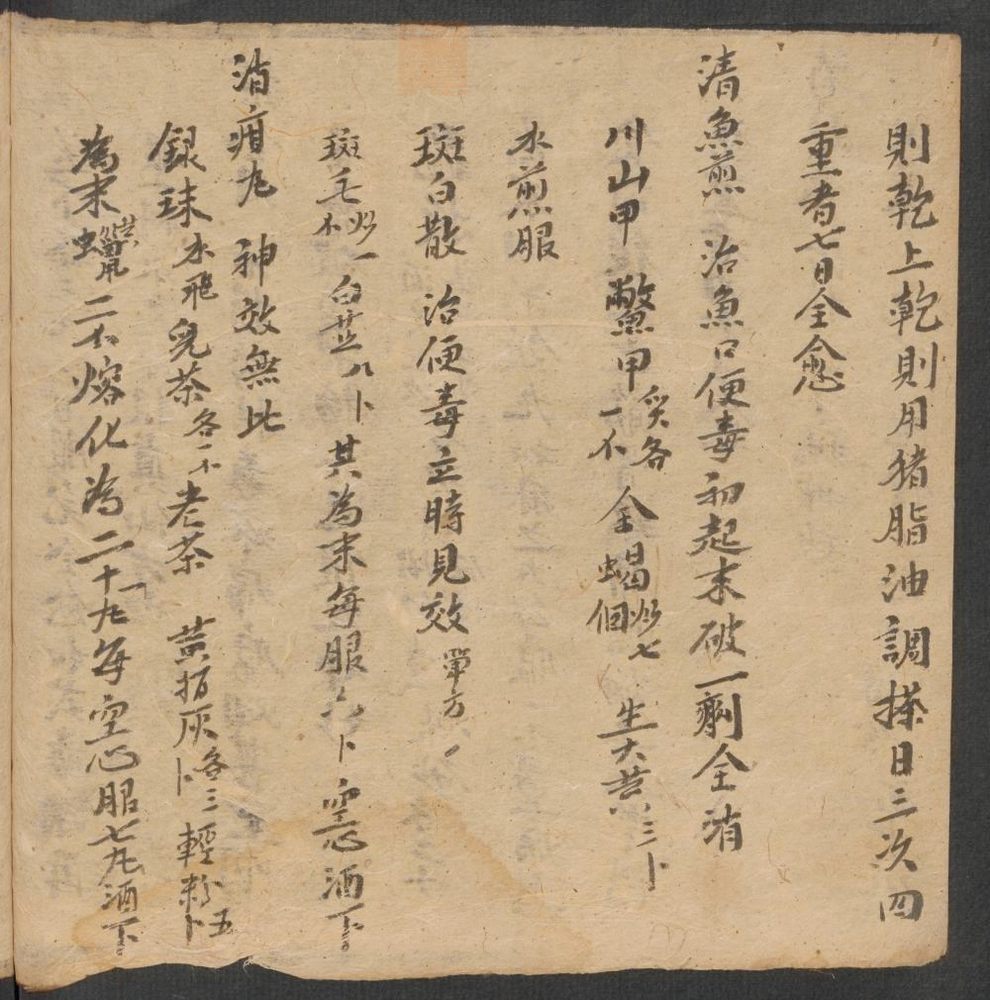 則乾上乾則用猪脂油調搽日三次四
重者七日全愈
清魚煎　治魚口便毒初起末破一劑全消
川山甲　鱉甲炙各一不　全蝎炒七個　生大黄三卜
水煎服
斑白散　治便毒立時見效單方
斑毛炒不一　白芷八卜　其為末每服　卜空心酒下
消疳丸　神效無比
銀珠水飛兒茶各一不老茶　黄指灰各三卜輕粉五卜
為末黄蠟二不熔化為二十一丸每空心服七丸酒下